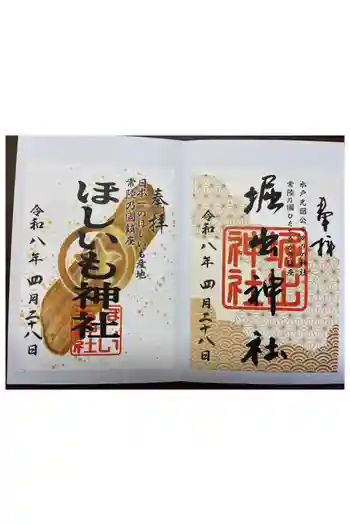 奉拝
水戸光圀公
常陸乃國ひ
堀出神社
令和八年 四月二十八日
堀出神社
奉拝
日本一のほしいも産地
常陸乃國鎮座
ほしいも神社
令和八年 四月二十八日